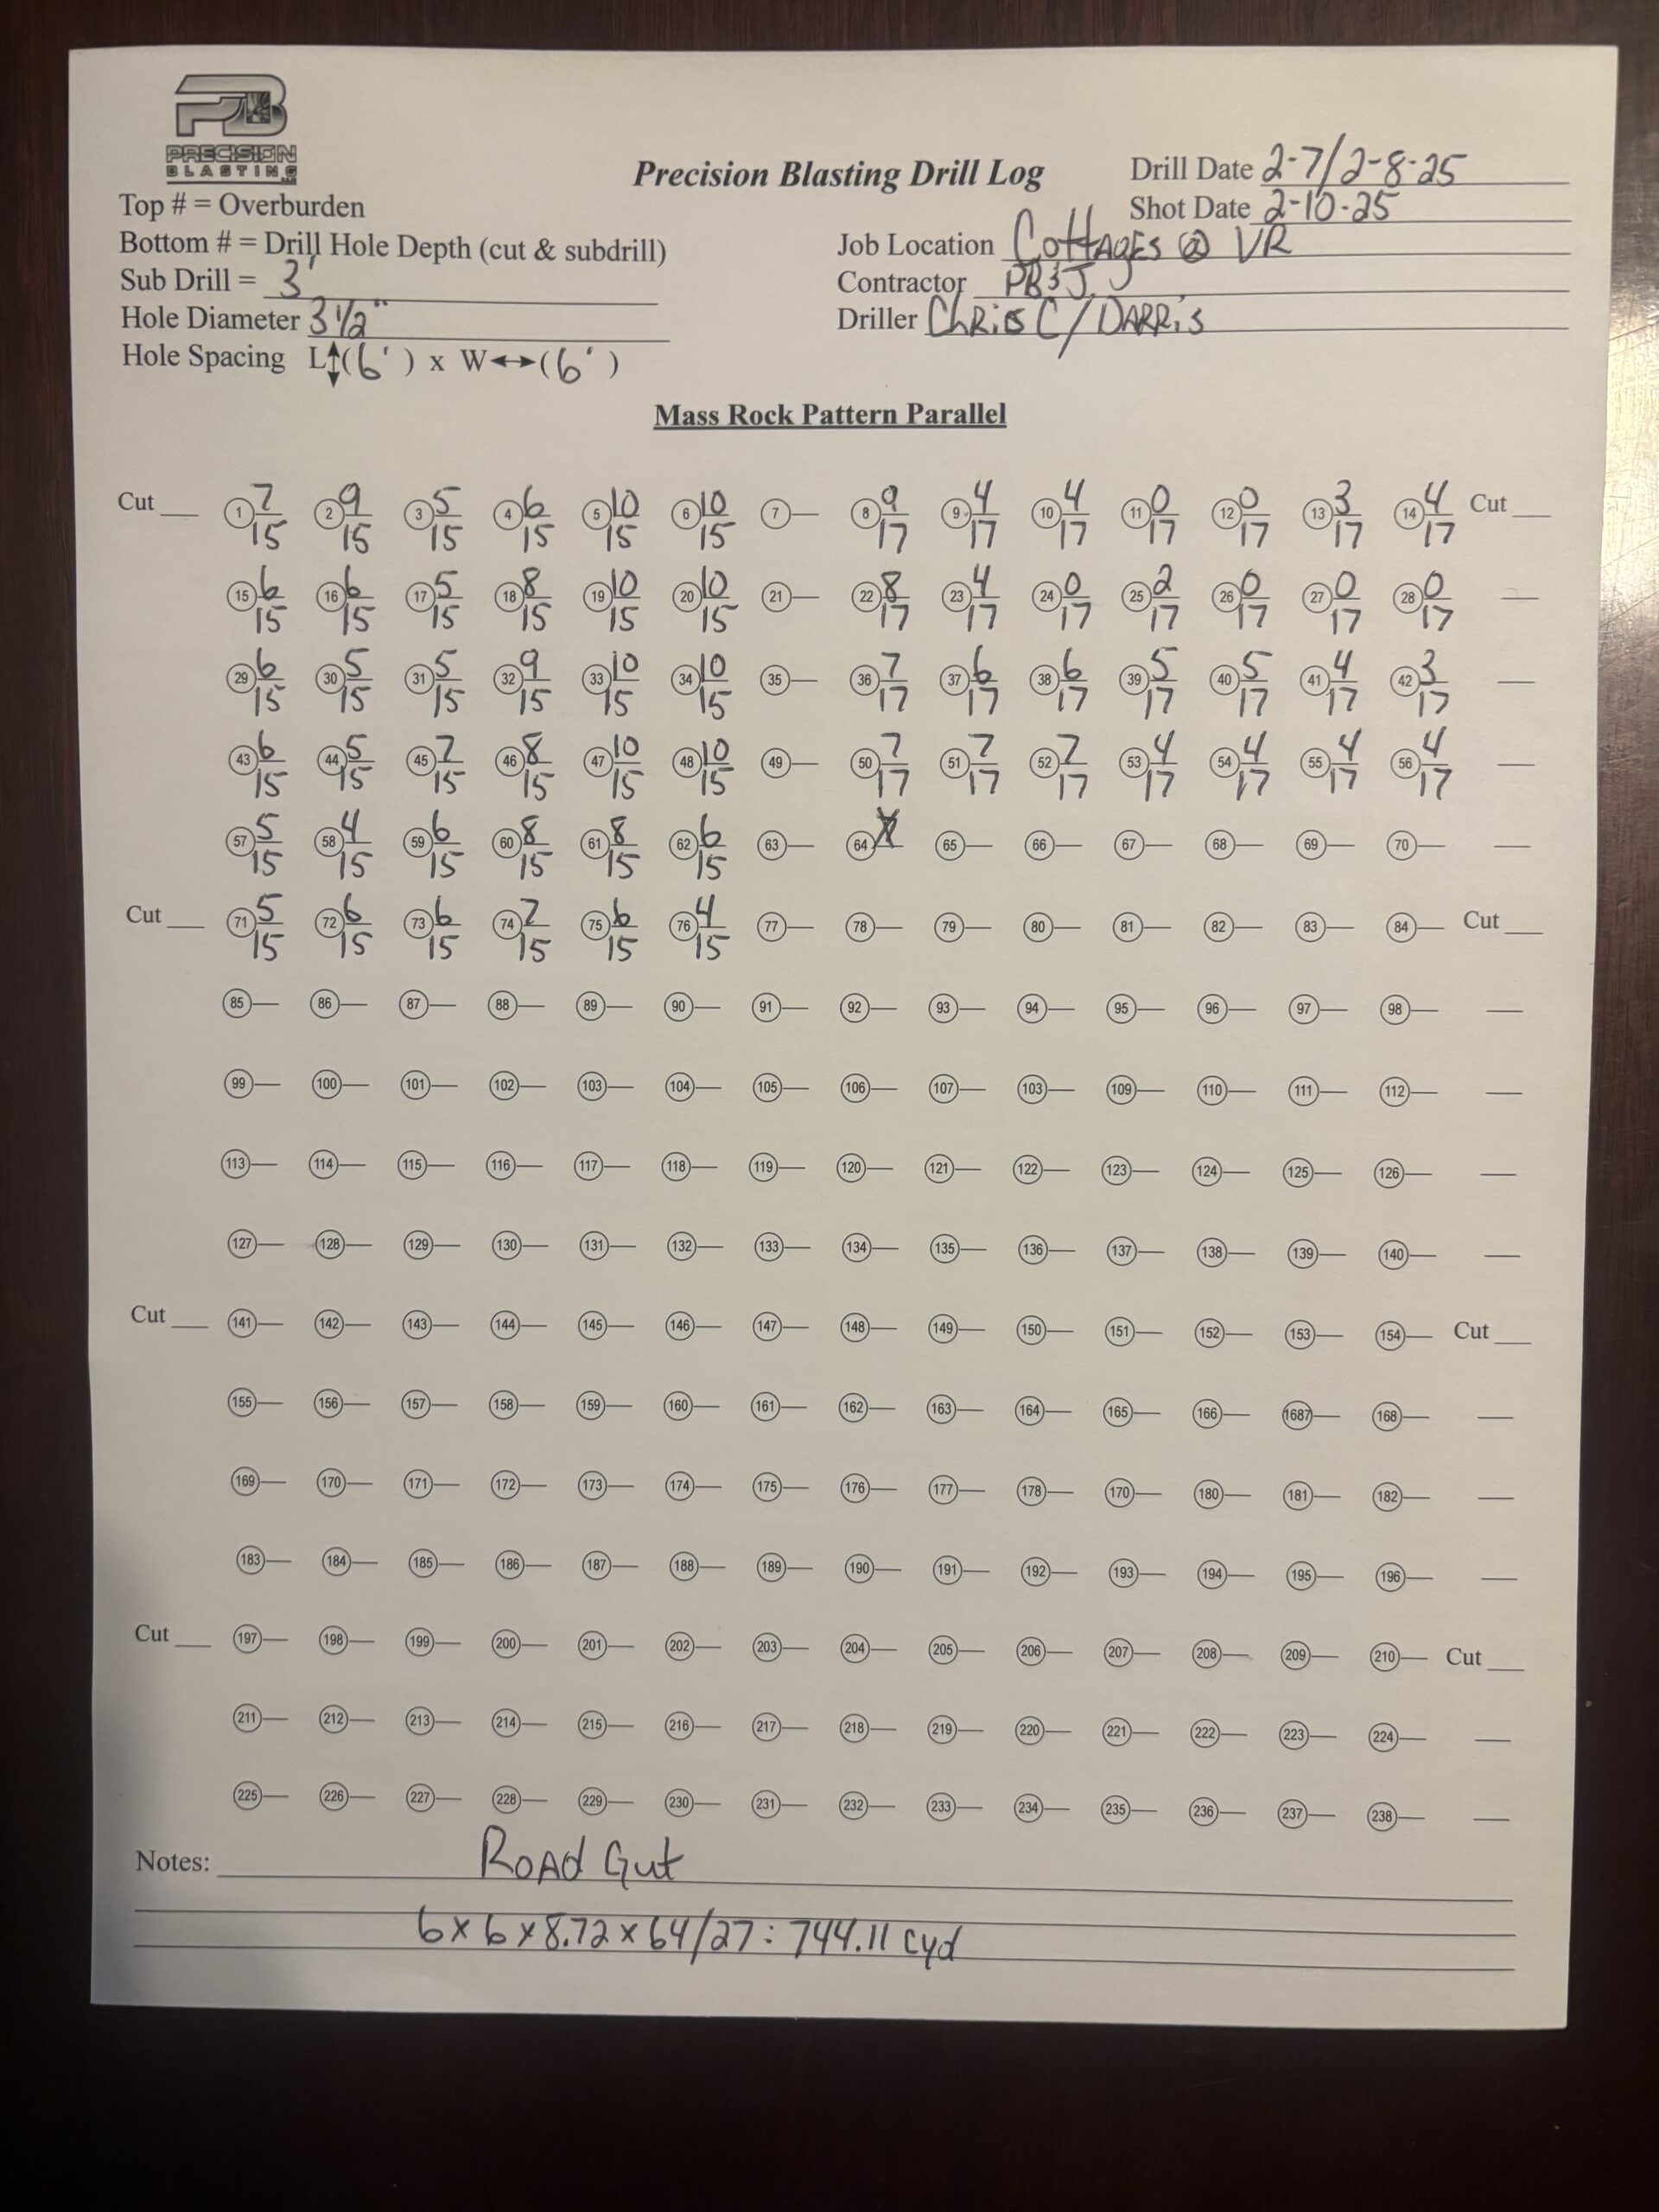 PB
PRECISION
BLASTING
Precision Blasting Drill Log
Drill Date 2-7/2-8-25
Top # = Overburden
Shot Date 2-10-25
Bottom # = Drill Hole Depth (cut & subdrill)
Job Location Cottages @ VR
Sub Drill = 3'
Contractor PB&J
Hole Diameter 3 1/2"
Driller Chris C/DARRis
Hole Spacing L(6') x W(6')
Mass Rock Pattern Parallel
Cut 1 7/15 2 9/15 3 5/15 4 6/15 5 10/15 6 10/15 7 8 9/17 9 4/17 10 4/17 11 0/17 12 0/17 13 3/17 14 4/17 Cut
15 6/15 16 6/15 17 5/15 18 8/15 19 10/15 20 10/15 21 22 8/17 23 4/17 24 0/17 25 2/17 26 0/17 27 0/17 28 0/17
29 6/15 30 5/15 31 5/15 32 9/15 33 10/15 34 10/15 35 36 7/17 37 6/17 38 6/17 39 5/17 40 5/17 41 4/17 42 3/17
43 6/15 44 5/15 45 7/15 46 8/15 47 10/15 48 10/15 49 50 7/17 51 7/17 52 7/17 53 4/17 54 4/17 55 4/17 56 4/17
57 5/15 58 4/15 59 6/15 60 8/15 61 8/15 62 6/15 63 64 65 66 67 68 69 70
Cut 71 5/15 72 6/15 73 6/15 74 7/15 75 6/15 76 4/15 77 78 79 80 81 82 83 84 Cut
85 86 87 88 89 90 91 92 93 94 95 96 97 98
99 100 101 102 103 104 105 106 107 103 109 110 111 112
113 114 115 116 117 118 119 120 121 122 123 124 125 126
127 128 129 130 131 132 133 134 135 136 137 138 139 140
Cut 141 142 143 144 145 146 147 148 149 150 151 152 153 154 Cut
155 156 157 158 159 160 161 162 163 164 165 166 1687 168
169 170 171 172 173 174 175 176 177 178 170 180 181 182
183 184 185 186 187 188 189 190 191 192 193 194 195 196
Cut 197 198 199 200 201 202 203 204 205 206 207 208 209 210 Cut
211 212 213 214 215 216 217 218 219 220 221 222 223 224
225 226 227 228 229 230 231 232 233 234 235 236 237 238
Notes: ROAD Gut
6 x 6 x 8.72 x 64/27 : 744.11 cyd